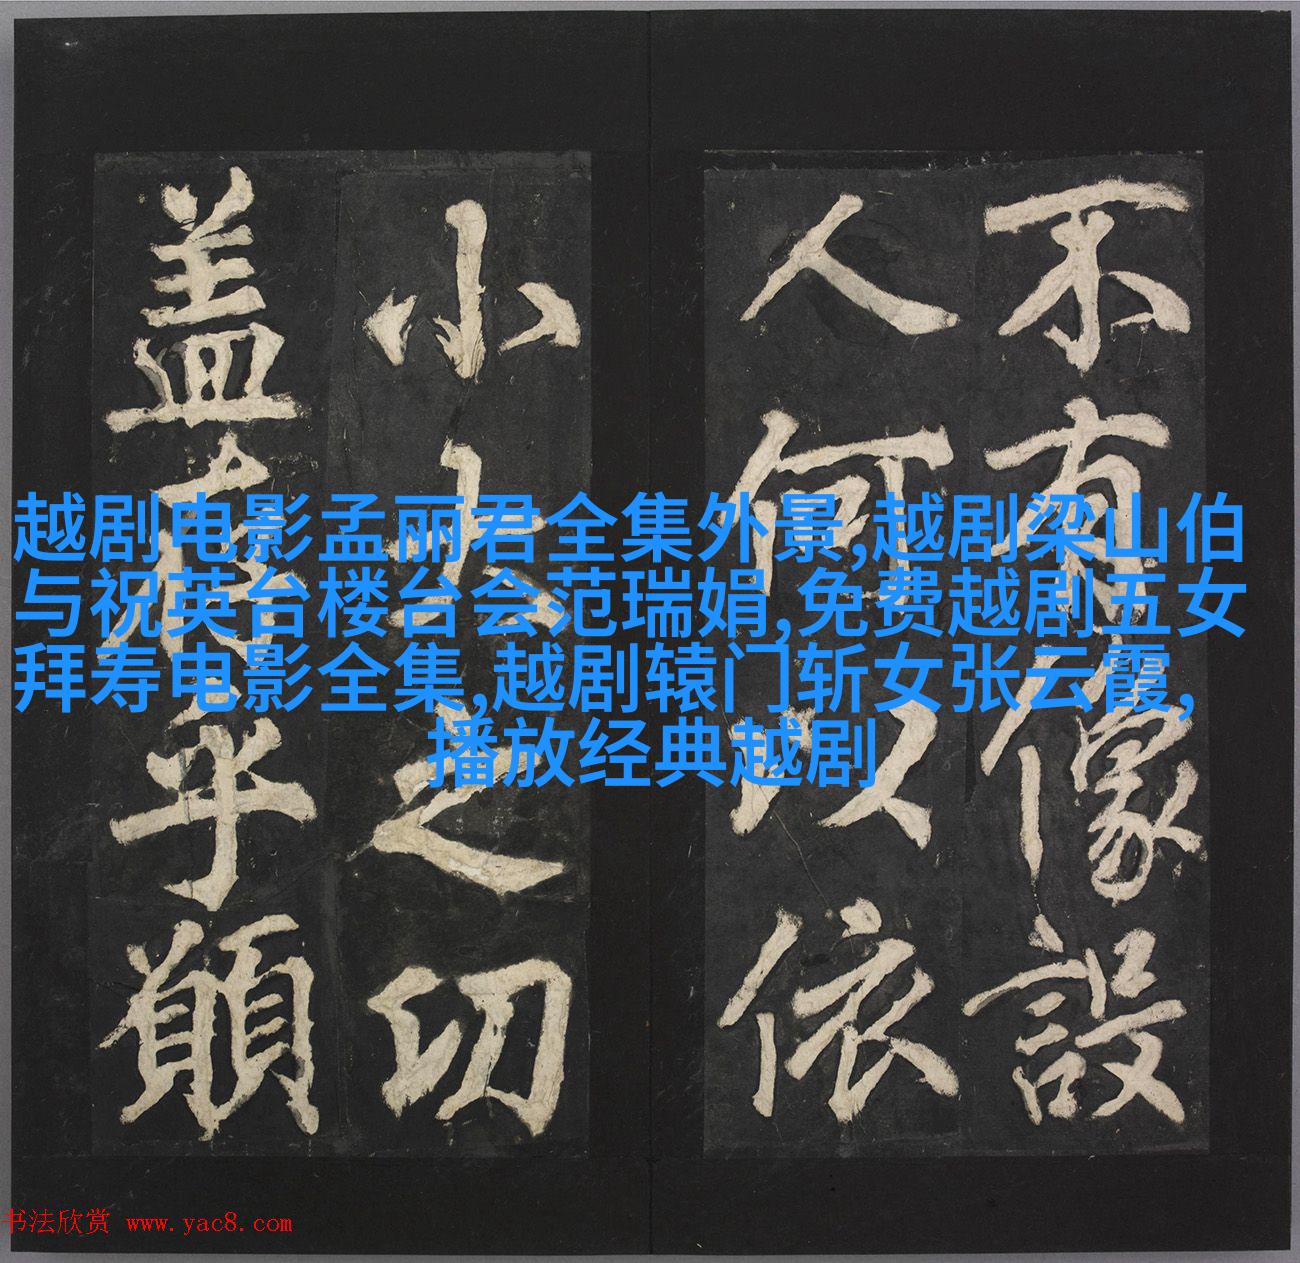 不有像設
人何以依
小大之切
盖乎願
越剧电影孟丽君全集外景,越剧梁山伯
与祝英台楼台会范瑞娟,免费越剧五女
拜寿电影全集,越剧辕门斩女张云霞,
播放经典越剧
书法欣赏 www.yac8.com